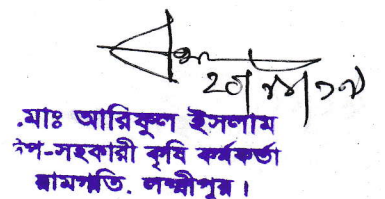 ২০/০৮/১৯
.মাঃ আরিফুল ইসলাম
উপ-সহকারী কৃষি কর্মকর্তা
রামগতি. লক্ষ্মীপুর।